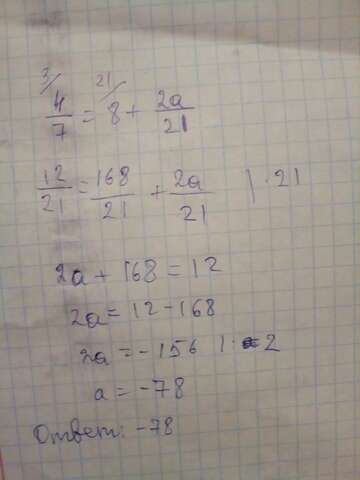 3/ 21/
4/7 = 8 + 2a/21
12/21 = 168/21 + 2a/21 | · 21
2a + 168 = 12
2a = 12 - 168
2a = -156 | · 2
a = -78
Ответ: -78